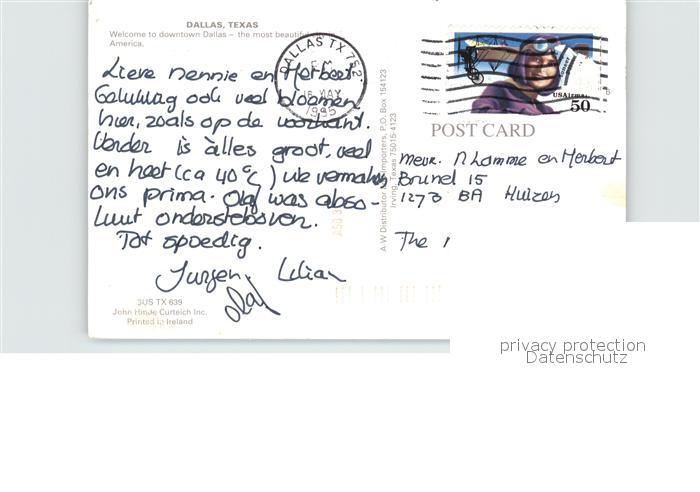 DALLAS, TEXAS
Welcome to downtown Dallas – the most beautiful
America.
DALLAS TX 752
MAY
1995
Lieve Nennie en Herbert
Gelukkig ook veel bloemen
hier, zoals op de voorkant.
Verder is alles groot, veel
en heet (ca 40°C) We vermaken
ons prima. Olaf was abso-
luut ondersteboven.
Tot spoedig.
Jurgen, Lilian
Olaf
3US TX 639
John Hinde Curteich Inc.
Printed in Ireland
A-W Distributor & Importers, P.O. Box 154123
Irving, Texas 75015-4123
USAirmail
50
POST CARD
Mevr. N Lamme en Herbert
Brunel 15
1273 BA Huizen
The
privacy protection
Datenschutz